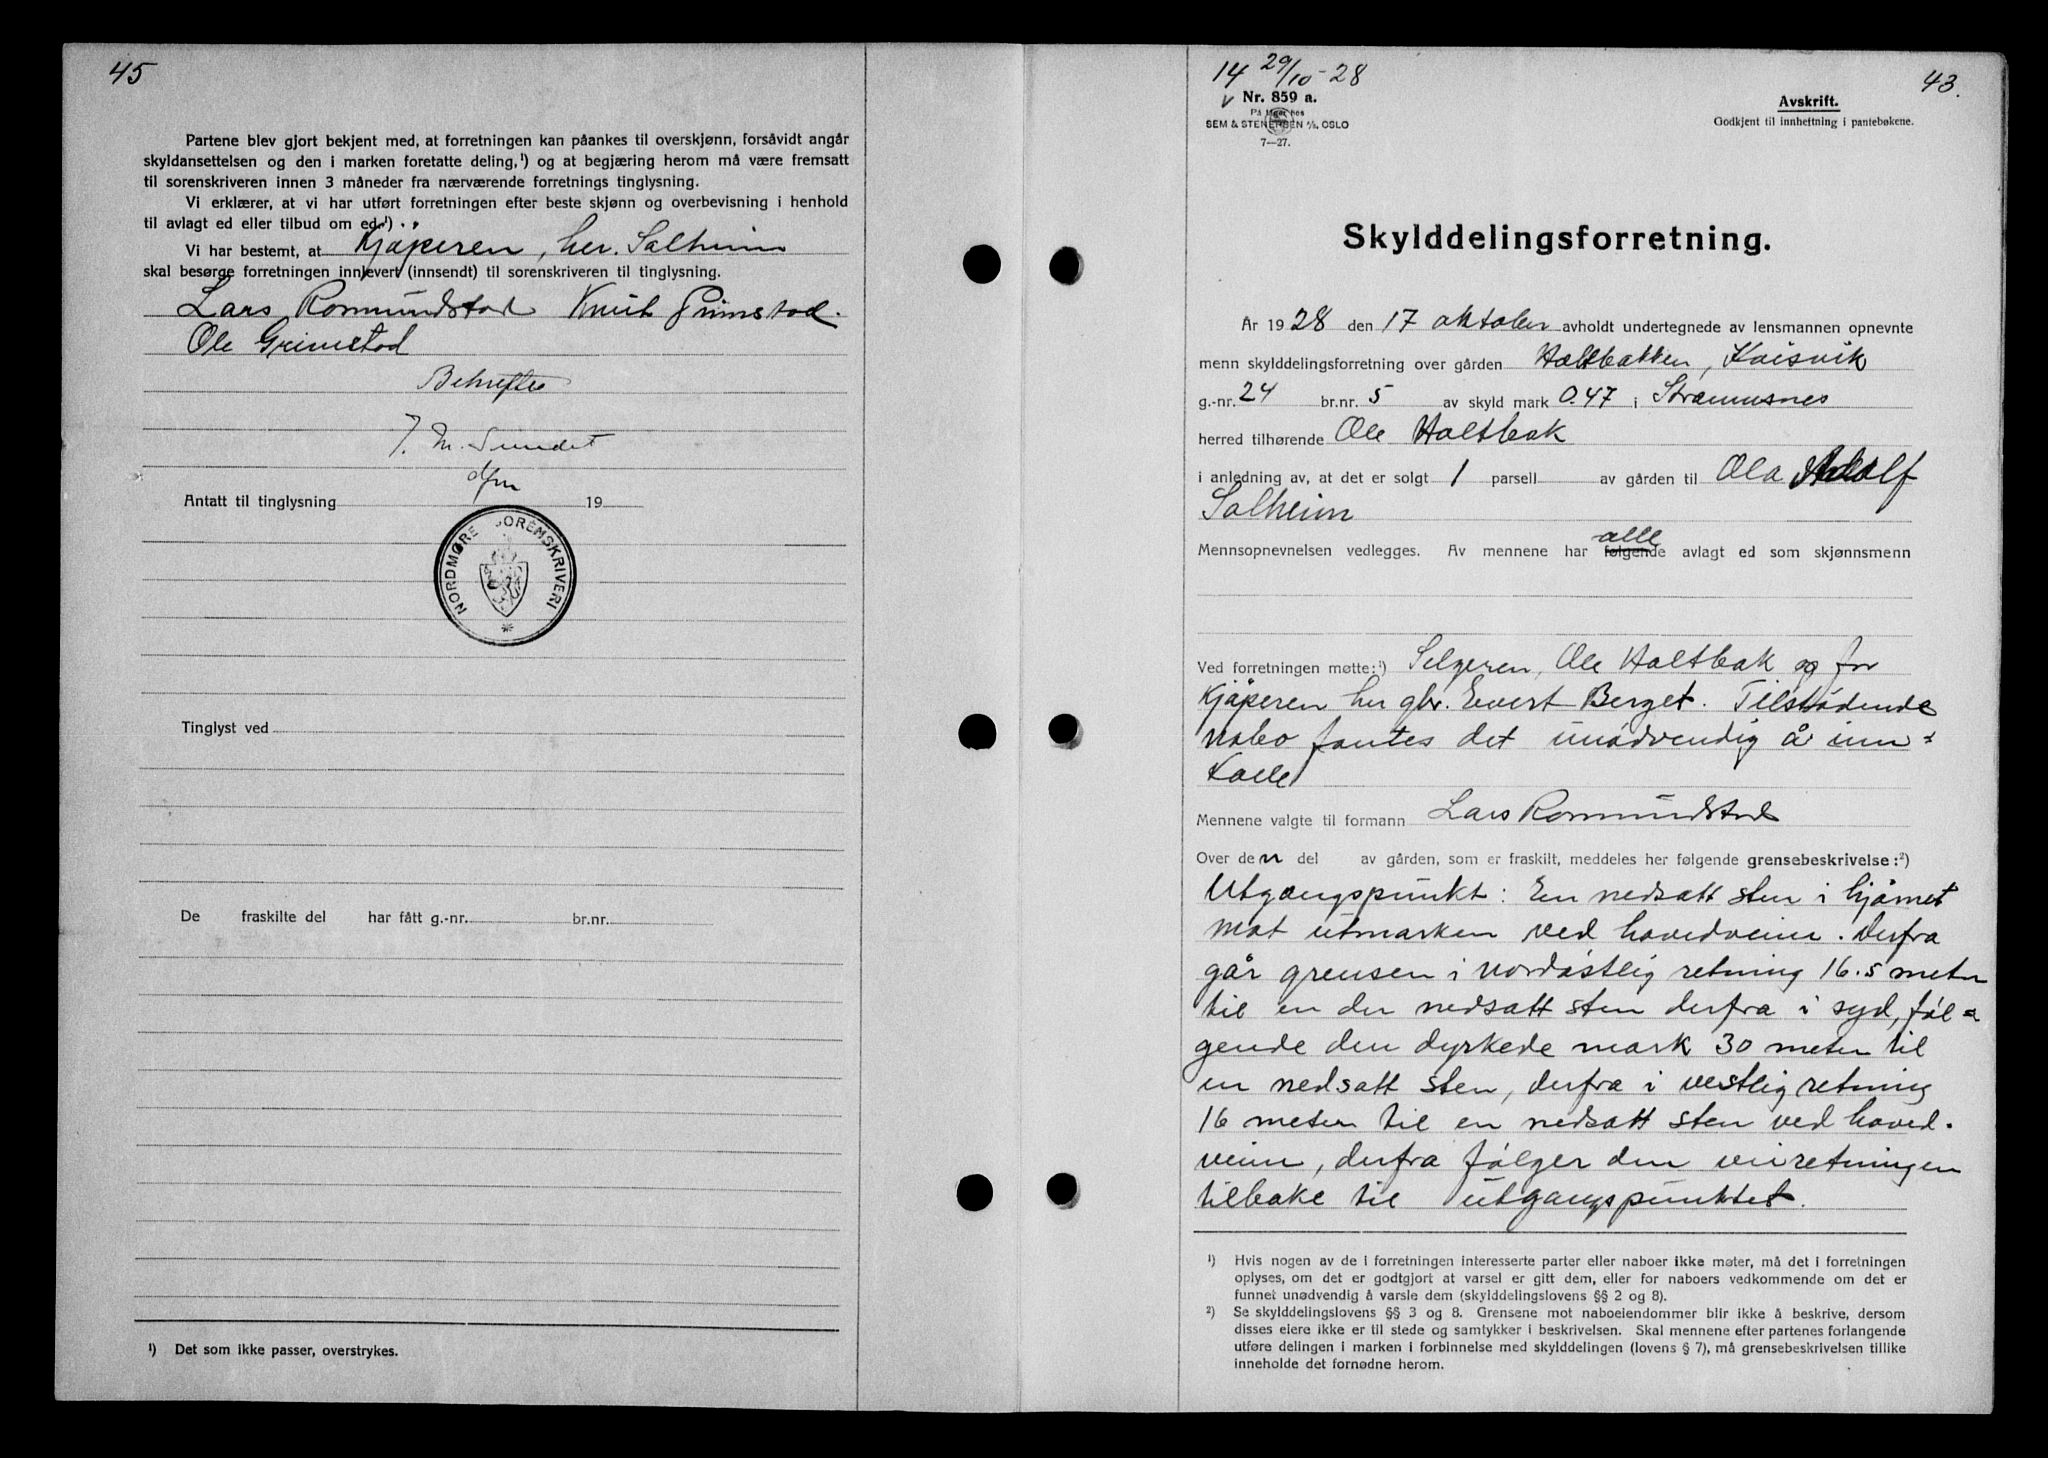 45
Partene blev gjort bekjent med, at forretningen kan påankes til overskjønn, forsåvidt angår
skyldansettelsen og den i marken foretatte deling,¹) og at begjæring herom må være fremsatt
til sorenskriveren innen 3 måneder fra nærværende forretnings tinglysning.
Vi erklærer, at vi har utført forretningen efter beste skjønn og overbevisning i henhold
til avlagt ed eller tilbud om ed.¹)
Vi har bestemt, at Kjøperen, hr. Salheim
skal besørge forretningen innlevert (innsendt) til sorenskriveren til tinglysning.
Lars Romundstad Knut Grimstad.
Ole Grimstad
Bekreftes
J. M. Sundet
dfm
Antatt til tinglysning 19
NORDMØRE SORENSKRIVERI
Tinglyst ved
De fraskilte del har fått g.-nr. br.nr.
¹) Det som ikke passer, overstrykes.
14 29/10-28
43.
Nr. 859 a.
På lager hos
SEM & STENERSEN A/S, OSLO
7—27.
Avskrift.
Godkjent til innheftning i pantebøkene.
Skylddelingsforretning.
År 1928 den 17 oktober avholdt undertegnede av lensmannen opnevnte
menn skylddelingsforretning over gården Holtbakken, Kvisvik
g.-nr. 24 br.nr. 5 av skyld mark 0.47 i Straumsnes
herred tilhørende Ole Holtbak
i anledning av, at det er solgt 1 parsell av gården til Ola Adolf
Salheim
alle
Mennsopnevnelsen vedlegges. Av mennene har følgende avlagt ed som skjønnsmenn
Ved forretningen møtte:¹) Selgeren, Ole Holtbak og for
Kjøperen hr gbr. Evert Berget. Tilstødende
nabo fantes det unødvendig å inn-
kalle
Mennene valgte til formann Lars Romundstad
Over den del av gården, som er fraskilt, meddeles her følgende grensebeskrivelse:²)
Utgangspunkt: En nedsatt sten i hjørnet
mot utmarken ved hovedveien. Derfra
går grensen i nordøstlig retning 16.5 meter
til en der nedsatt sten derfra i syd, føl-
gende den dyrkede mark 30 meter til
en nedsatt sten, derfra i vestlig retning
16 meter til en nedsatt sten ved hoved-
veien, derfra følger den veiretningen
tilbake til utgangspunktet.
¹) Hvis nogen av de i forretningen interesserte parter eller naboer ikke møter, må det i forretningen
oplyses, om det er godtgjort at varsel er gitt dem, eller for naboers vedkommende om det er
funnet unødvendig å varsle dem (skylddelingslovens §§ 2 og 8).
²) Se skylddelingslovens §§ 3 og 8. Grensene mot naboeiendommer blir ikke å beskrive, dersom
disses eiere ikke er til stede og samtykker i beskrivelsen. Skal mennene efter partenes forlangende
utføre delingen i marken i forbinnelse med skylddelingen (lovens § 7), må grensebeskrivelsen tillike
inneholde det fornødne herom.